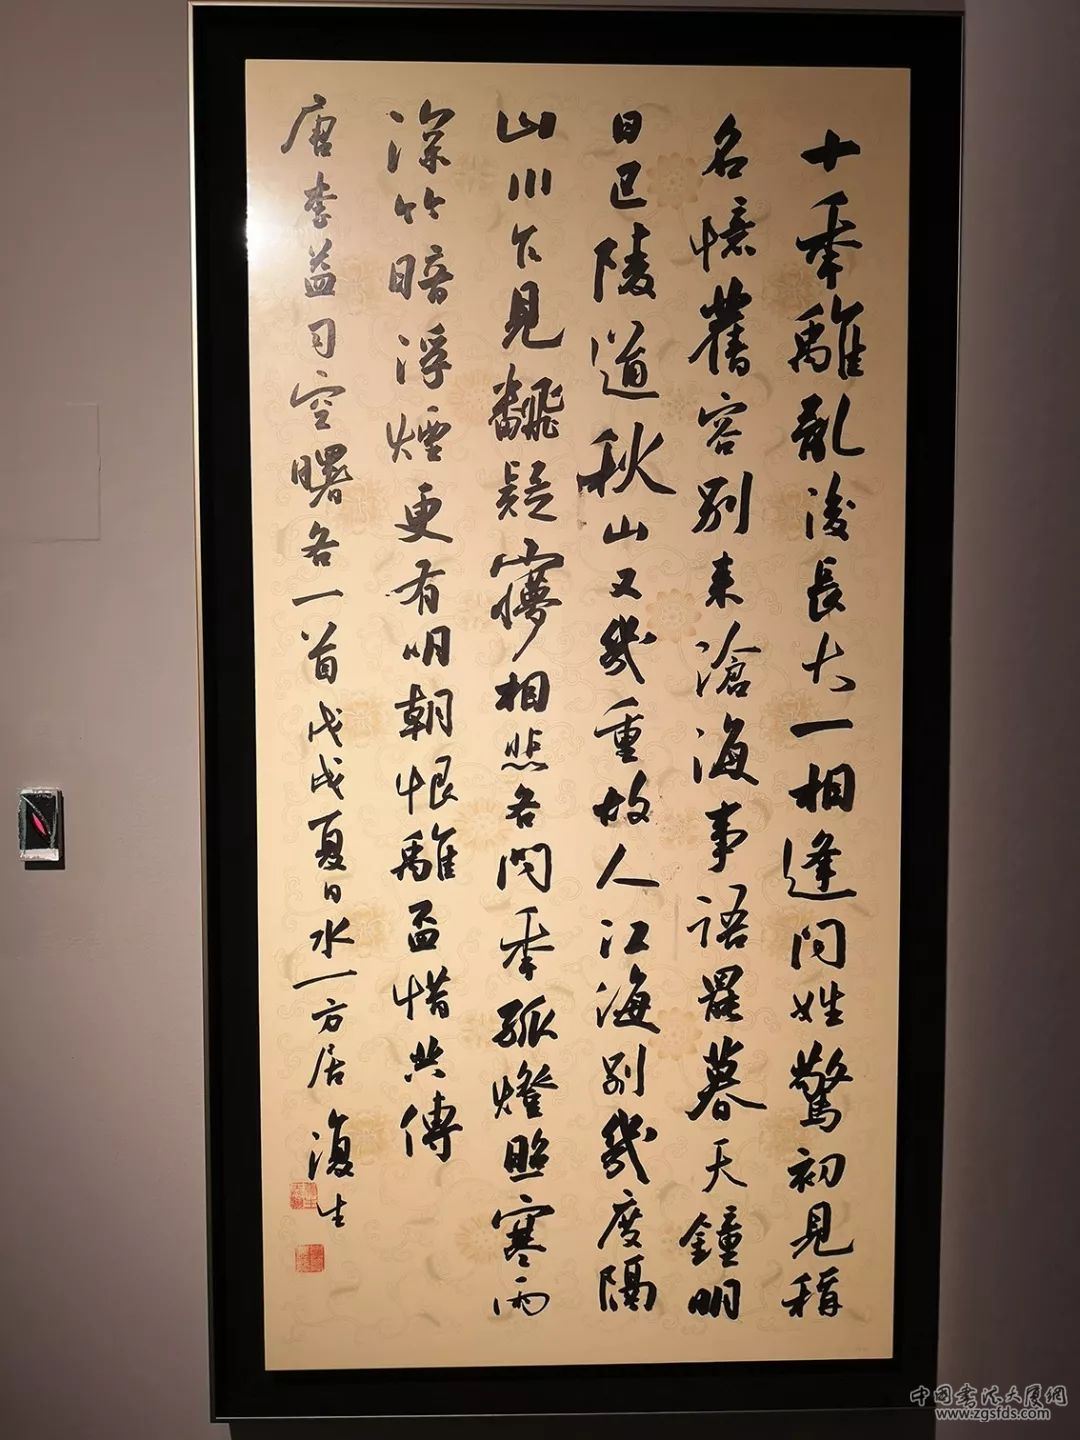 十年離亂後長大一相逢問姓驚初見稱
名憶舊容別來滄海事語罷暮天鐘明
日巴陵道秋山又幾重故人江海別幾度隔
山川乍見飜疑夢相悲各問年孤燈照寒雨
深竹暗浮煙更有明朝恨離盃惜共傳
唐李益司空曙各一首戊戌夏日水一方居復生
中國書法大廈網
www.zgsfds.com